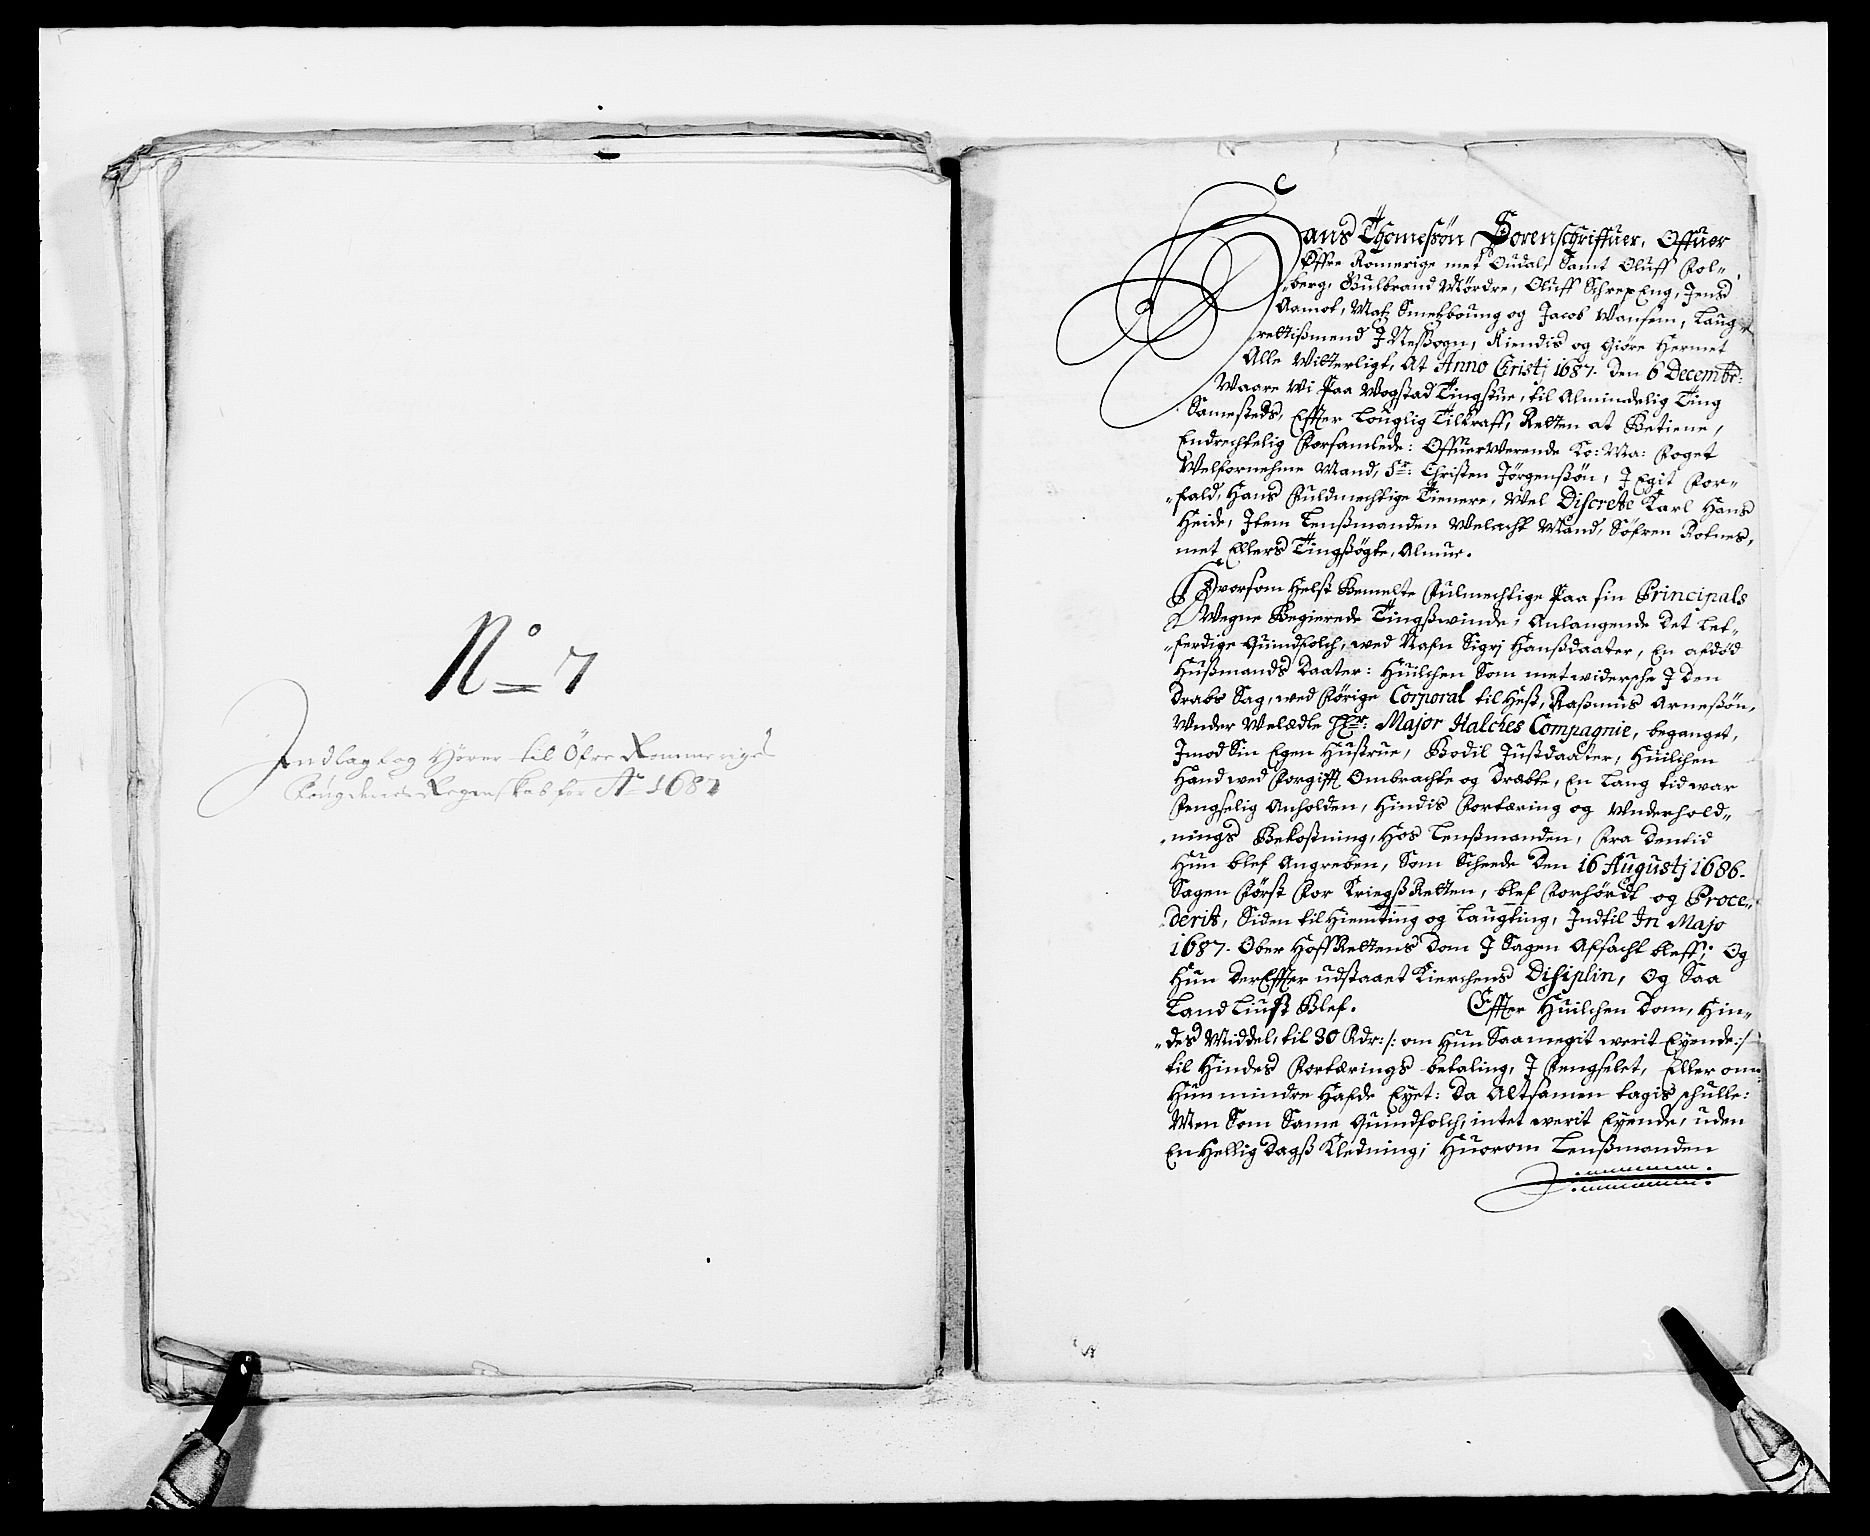 No 7
Indlag og Hører til Öfre Rommerigs
Fougderies Regenskab for Ao 1687
Hans Thomeßøn Sorenschriffuer, Offuer
Øffre Romerige met Oudal, Samt Oluff Fol-
-berg, Gulbrand Mørdre, Oluff SchrepEng, Jens
Aamot, Matz Smetzboung og Jacob Wansem, Laug-
rettißmend J Neßsogn, Kiendis og Giøre Hermet
Alle Witterligt, At Anno Christj 1687. den 6 Decembr:
Waare wi Paa Wogstad Tingstue, til Almindelig Ting
Samesteds, Effter Louglig Tilkraff, Retten at Betiene,
Endrechtelig Forsamlede: OffuerWerende Ko: Ma: Foget
Welfornehme Mand, Sr: Christen Jørgenßøn, J Egit For-
-fald, Hans Fuldmechtige Tienere, Wel Discrete Karl Hans
Heide, Jtem Lenßmanden Welacht Mand, Søfren Rotnes,
met Ellers Tingßøgte, Almue.
Hvorsom Helst Bemelte Fulmechtige Paa sin Principals
Wegne Begierede Tingßwinde, Anlangende det Let-
-ferdige Quindfolch, wed Nafn Sigrj Hanßdaater, En afdød
Hußmands Daater: Huilchen Som met widersche J den
Drabs Sag, wed Førige Corporal til Hest, Raßmus Arneßøn,
Wnder Welædle Hr: Major Halches Compagnie, beganget,
Jmod Sin Egen Hustrue, Bodil Justdaater, Huilchen
Hand wed Forgifft Ombrachte og Dræbte, En Lang tid war
Fengselig Anholden, Hindis Fortæring og Vnderhold-
-nings Bekostning, Hos Lenßmanden, Fra dentid
Hun blef Angreben, Som Scheede den 16 Augustj 1686.
Sagen Først For KriegßRetten, blef Forhørdt og Proce-
derit, Siden til Hiemting og Laugting, Indtil In Majo
1687. Ober HoffRettens Dom J Sagen Afsacht bleff; Og
Hun derEffter udstaaet Kierchens Disiplin, Og Saa
Land Liust Blef. Effter Huilchen Dom, Hin-
-des Middel, til 30 Rdr: /: om Hun Saamegit werit Eyende :/
til Hindes Fortærings betaling, J Fengselet, Eller om
Hun mindre Hafde Eyet: da Altsamen tagis schulle:
Men Som Same Quindfolch, intet werit Eyende, uden
En Hellig Dagß Kledning; Huorom Lenßmanden